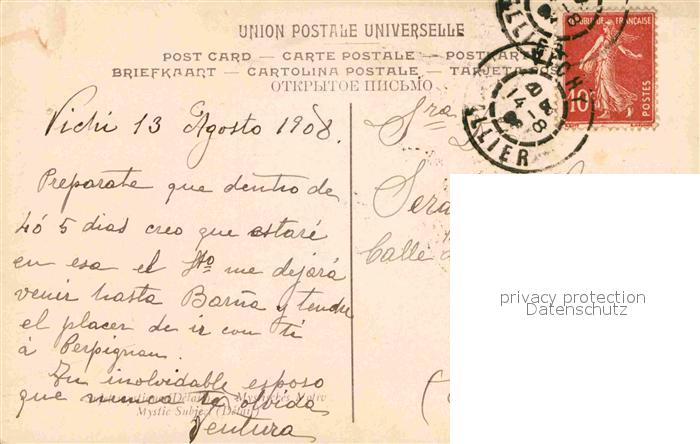 UNION POSTALE UNIVERSELLE
POST CARD — CARTE POSTALE — POSTKARTE
BRIEFKAART — CARTOLINA POSTALE — TARJETA POS
ОТКРЫТОЕ ПИСЬМО
Vichi 13 Agosto 1908.
Preparate que dentro de
4 ó 5 dias creo que estaré
en esa el me dejará
venir hasta Barña y tendre
el placer de ir con ti
à Perpignan.
Tu inolvidable esposo
que nunca te olvida
Ventura
Mystic Subject (Détail)
Sra
Calle
RÉPUBLIQUE FRANÇAISE
10
POSTES
14-8
ALLIER
privacy protection
Datenschutz